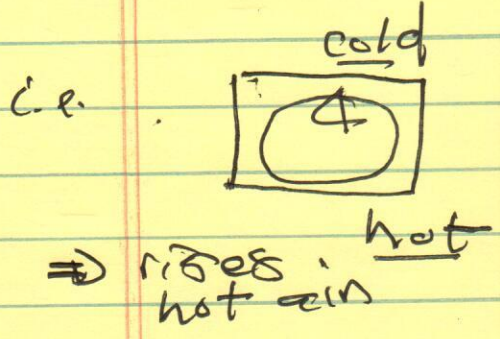 cold
i.e.
hot
⇒ rises
hot air